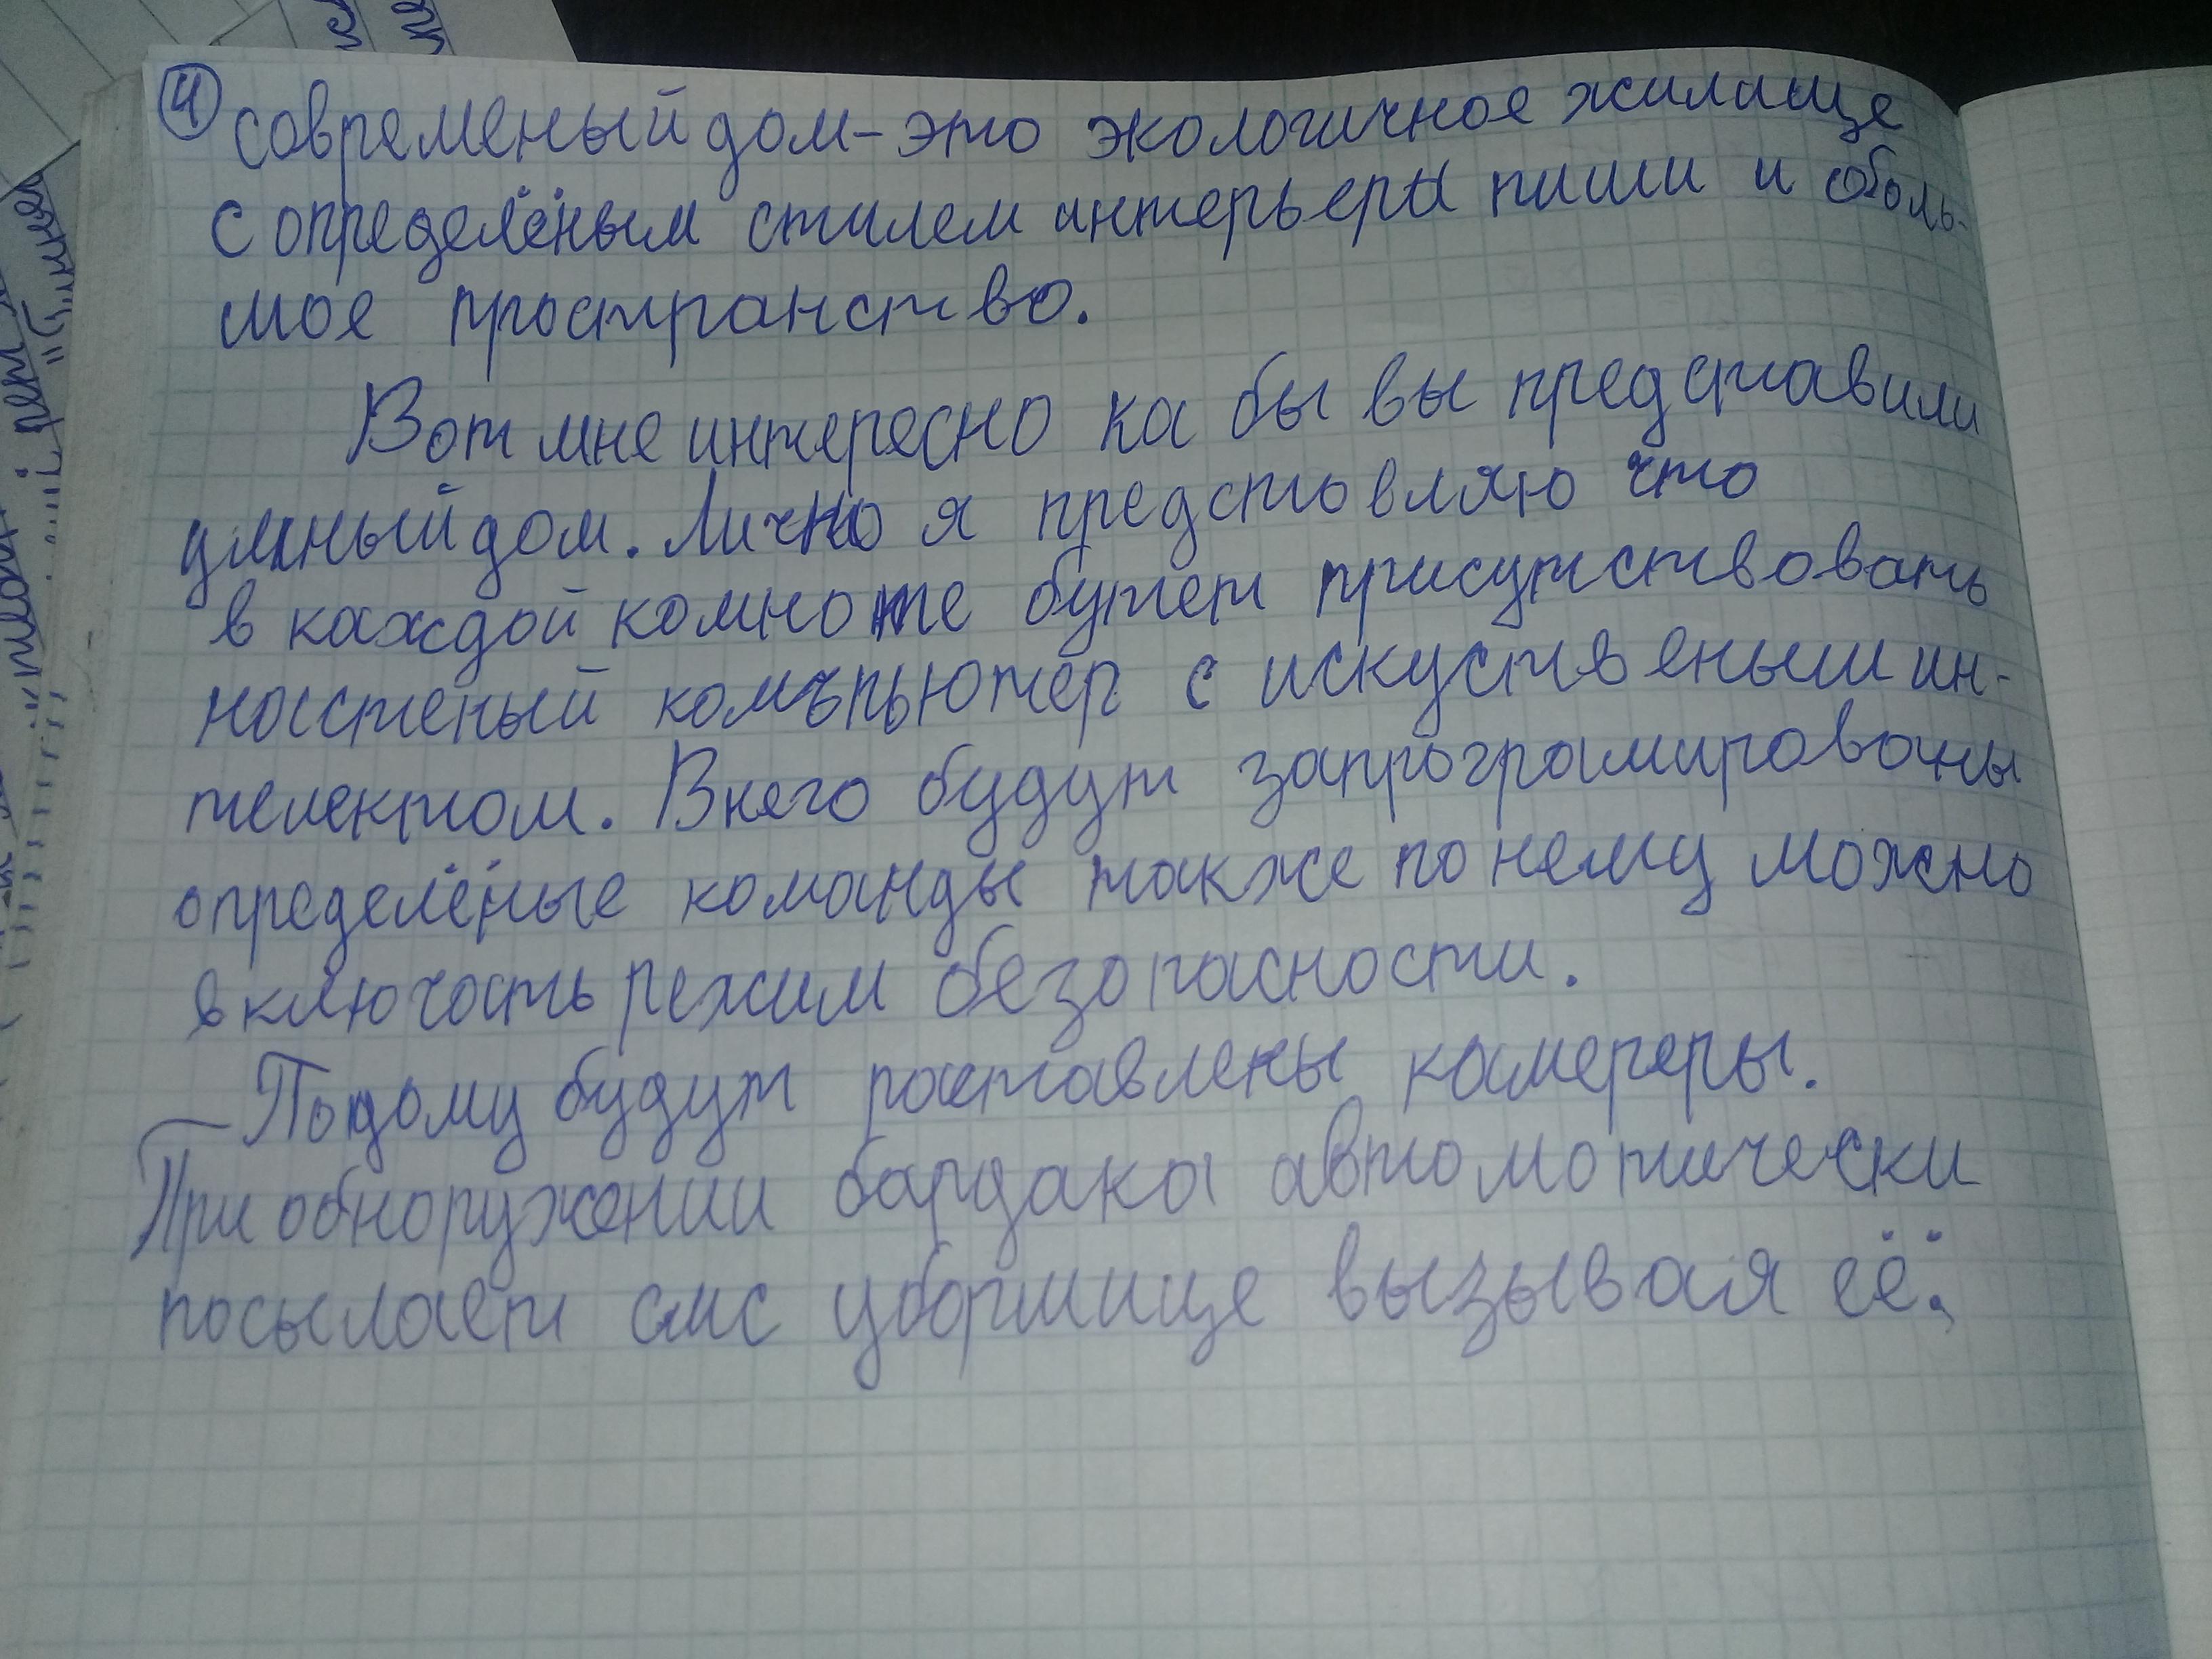 ④ современый дом - это экологичное жилище
с определёным стилем интерьера ниши и боль-
шое пространство.
Вот мне интересно ка бы вы представили
умный дом. Лично я представляю что
в каждой комнате бутет присутствовать
настеный комъпьютер с искуственым ин-
телектом. В него будут запрограмированы
определёные команды также по нему можно
включать режим безопасности.
По дому будут раставлены камереры.
При обноружении бардака автоматически
посылает смс уборшице вызывая её.